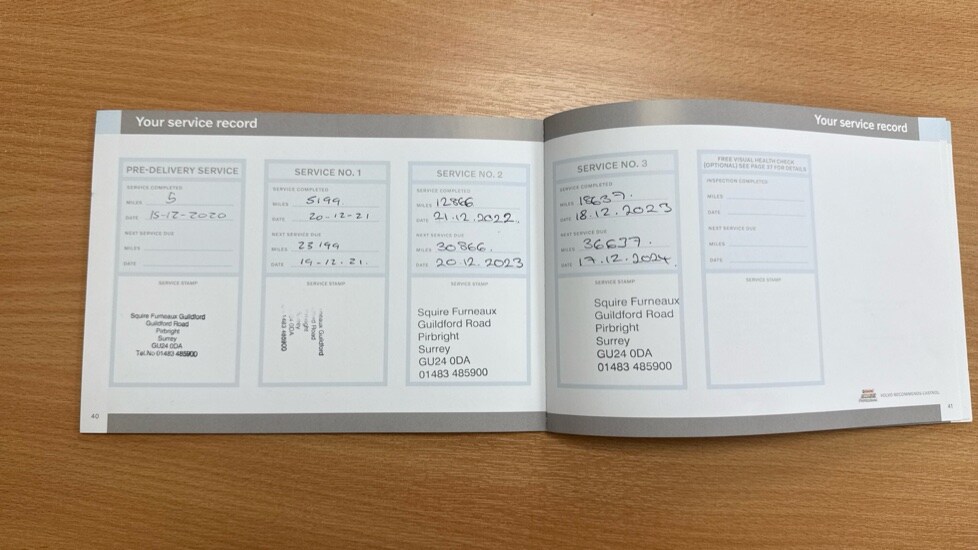 Your service record
PRE-DELIVERY SERVICE
SERVICE COMPLETED
MILES 5
DATE 15-12-2020
NEXT SERVICE DUE
MILES
DATE
SERVICE STAMP
Squire Furneaux Guildford
Guildford Road
Pirbright
Surrey
GU24 0DA
Tel.No 01483 485900
SERVICE NO. 1
SERVICE COMPLETED
MILES 5199
DATE 20-12-21
NEXT SERVICE DUE
MILES 23199
DATE 19-12-21.
SERVICE STAMP
neaux Guildford
rd Road
0DA
1483 485900
SERVICE NO. 2
SERVICE COMPLETED
MILES 12866
DATE 21.12.2022.
NEXT SERVICE DUE
MILES 30866.
DATE 20.12.2023
SERVICE STAMP
Squire Furneaux
Guildford Road
Pirbright
Surrey
GU24 0DA
01483 485900
40
Your service record
SERVICE NO. 3
SERVICE COMPLETED
MILES 18637.
DATE 18.12.2023
NEXT SERVICE DUE
MILES 36637.
DATE 17.12.2024.
SERVICE STAMP
Squire Furneaux
Guildford Road
Pirbright
Surrey
GU24 0DA
01483 485900
FREE VISUAL HEALTH CHECK
(OPTIONAL) SEE PAGE 37 FOR DETAILS
INSPECTION COMPLETED
MILES
DATE
NEXT SERVICE DUE
MILES
DATE
SERVICE STAMP
VOLVO RECOMMENDS CASTROL
41